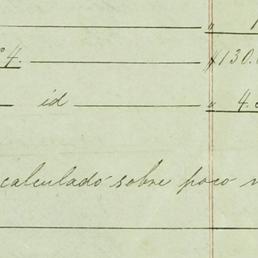 " 1
º 4. $130.
id " 4.
calculado sobre poco